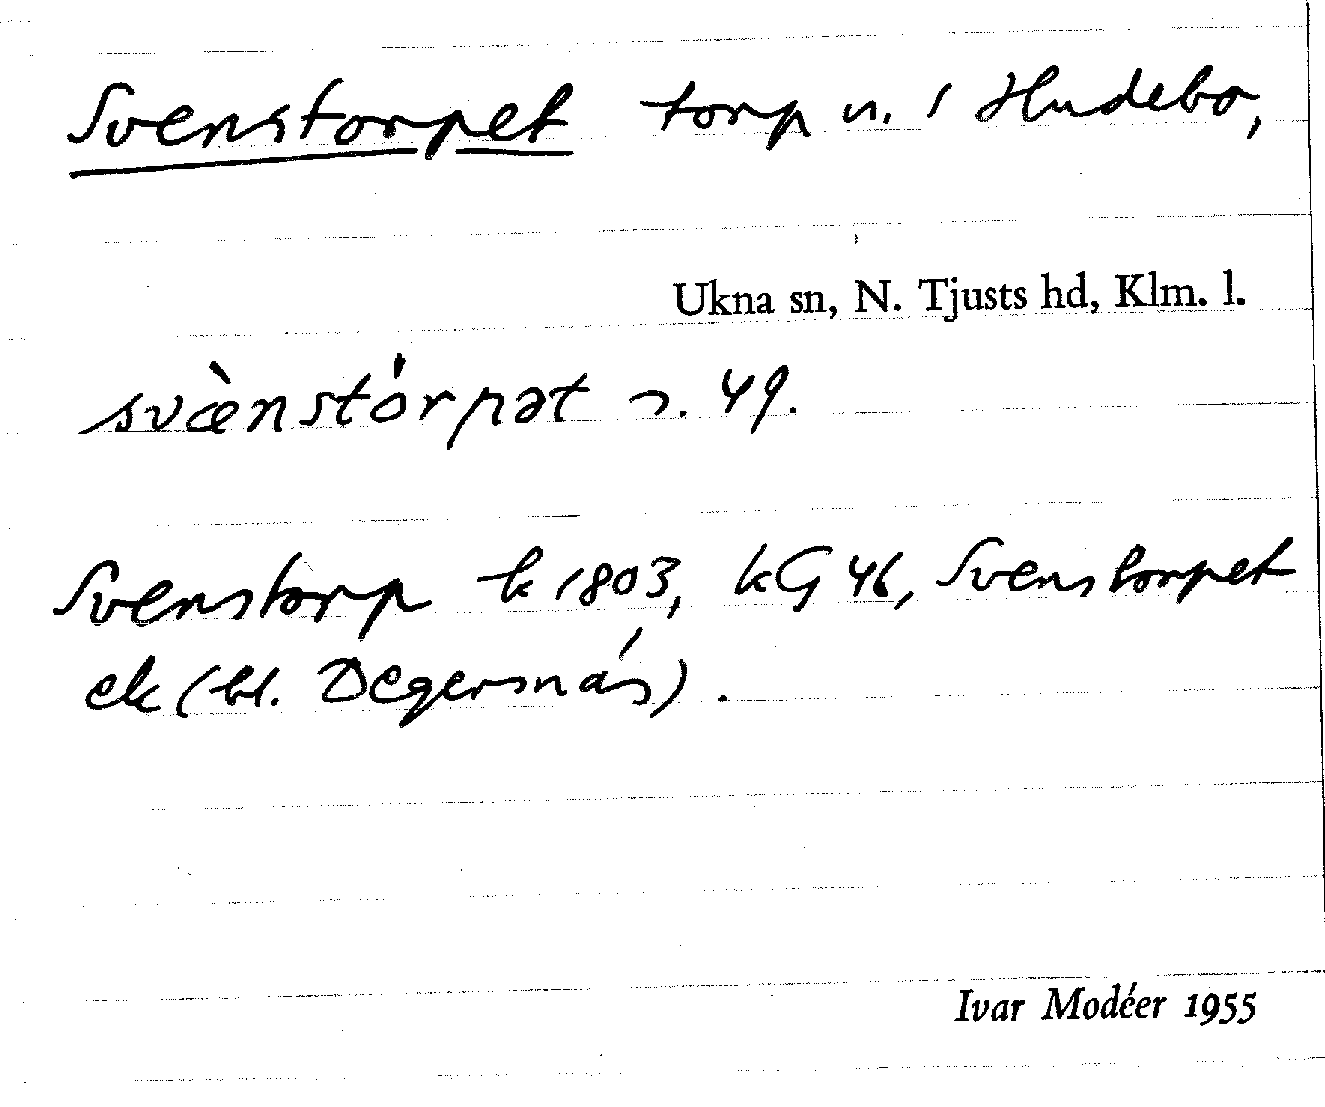 Svenstorpet torp n. 1 Hudebo,
Ukna sn, N. Tjusts hd, Klm. l.
svæ̀nstórpət n. 49.
Svenstorp k 1803, kG 46, Svenstorpet
ek (bl. Degersnäs).
Ivar Modéer 1955